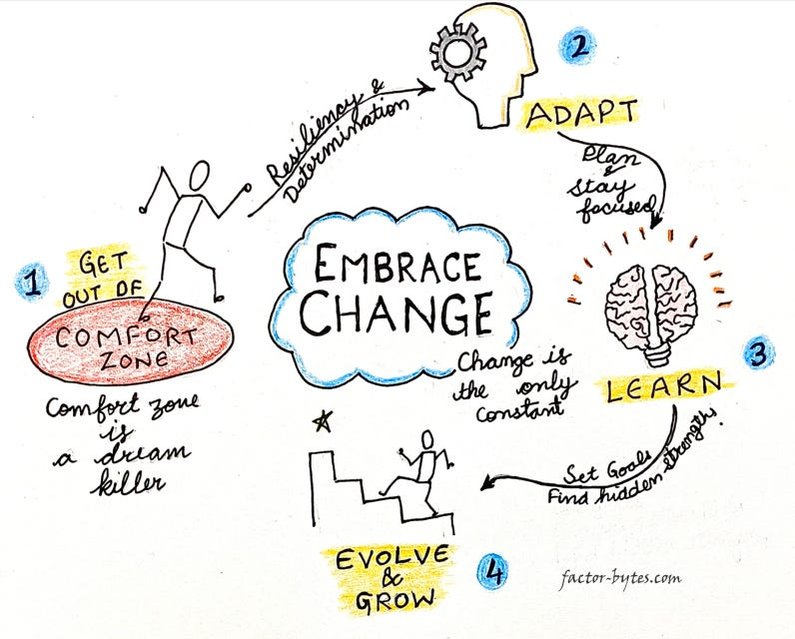 EMBRACE
CHANGE
Change is
the only
constant
1
GET
OUT OF
COMFORT
ZONE
Comfort zone
is
a dream
killer
Resiliency &
Determination
2
ADAPT
Plan
&
stay
focused
3
LEARN
Set Goals
Find hidden strengths.
4
EVOLVE
&
GROW
factor-bytes.com